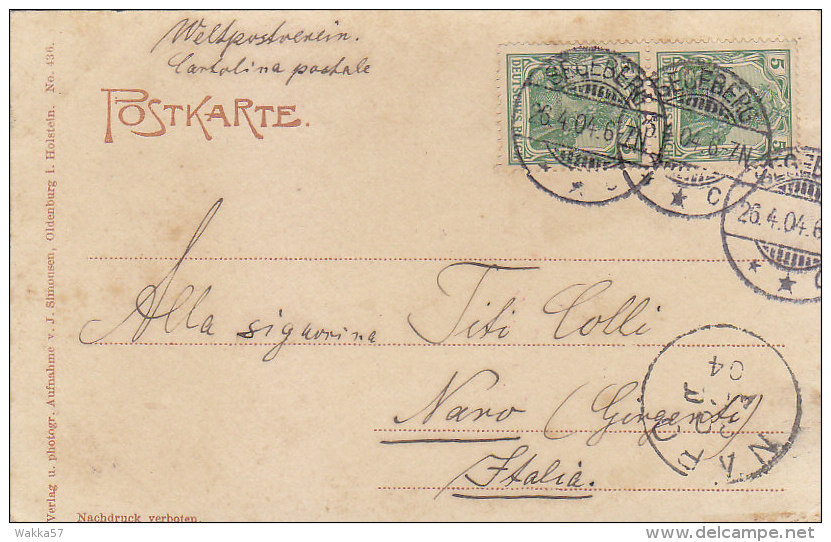 Weltpostverein.
Cartolina postale
POSTKARTE.
5 5
DEUTSCHES REICH
SEGEBERG
26.4.04.6-7N.
* * C
SEGEBERG
26.4.04.6-7N.
* C
SEGEB
26.4.04.6
* * C
Alla signorina Titi Colli
Naro (Girgenti)
Italia.
NARO
04
Verlag u. photogr. Aufnahme v. J. Simonsen, Oldenburg i. Holstein. No. 436.
Nachdruck verboten.
Wakka57
delcampe.net